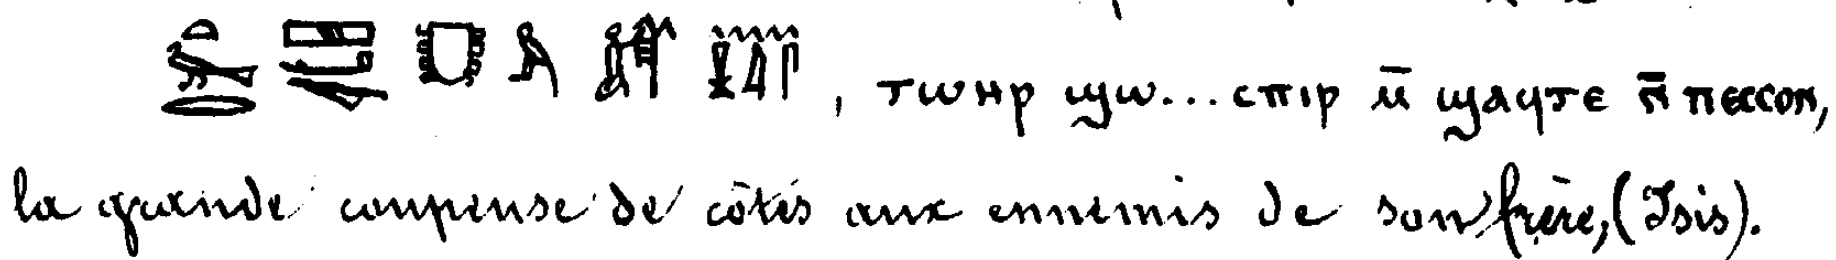 , ⲧⲱⲏⲣ ϣⲱ...ⲥⲡⲓⲣ ⲙ̄ ϣⲁϥⲧⲉ ⲛ̄ ⲡⲉⲥⲥⲟⲛ,
la grande coupeuse de côtés aux ennemis de son frère, (Isis).